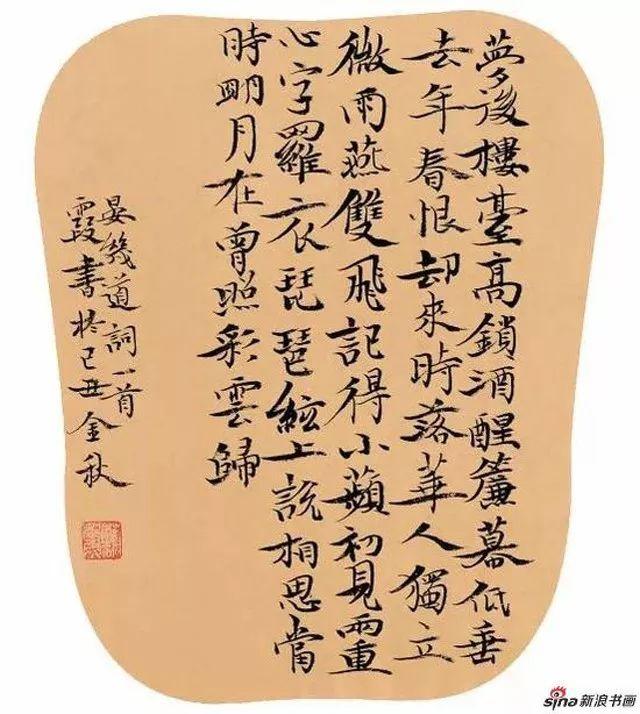 夢後樓臺高鎖酒醒簾幕低垂
去年春恨却來時落華人獨立
微雨燕雙飛記得小蘋初見兩重
心字羅衣琵琶絃上說相思當
時明月在曾照彩雲歸
晏幾道詞一首
霞書於己丑金秋
sina新浪书画